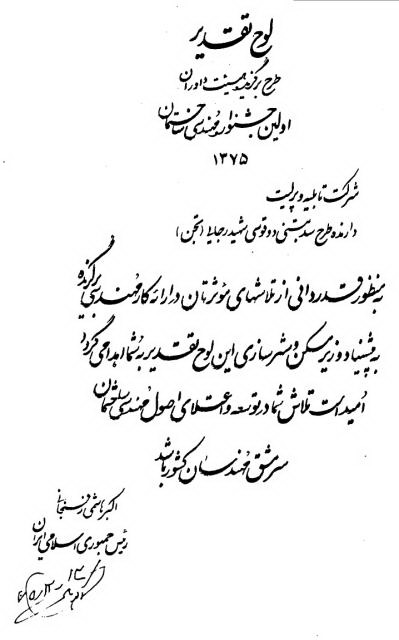 لوح تقدیر
طرح برگزیده هیئت داوران
اولین جشنواره مهندسی ساختمان
۱۳۷۵
شرکت تابلیه و پرلیت
دارنده طرح سد بتنی دو قوسی شهید رجایی (تجن)
به منظور قدردانی از تلاشهای مؤثرتان در ارائه کار مهندسی برگزیده
به پیشنهاد وزیر مسکن و شهرسازی این لوح تقدیر به شما اهدا می گردد
امید است تلاش شما در توسعه و اعتلای اصول مهندسی ساختمان
سرمشق مهندسان کشور باشد
اکبر هاشمی رفسنجانی
رئیس جمهوری اسلامی ایران